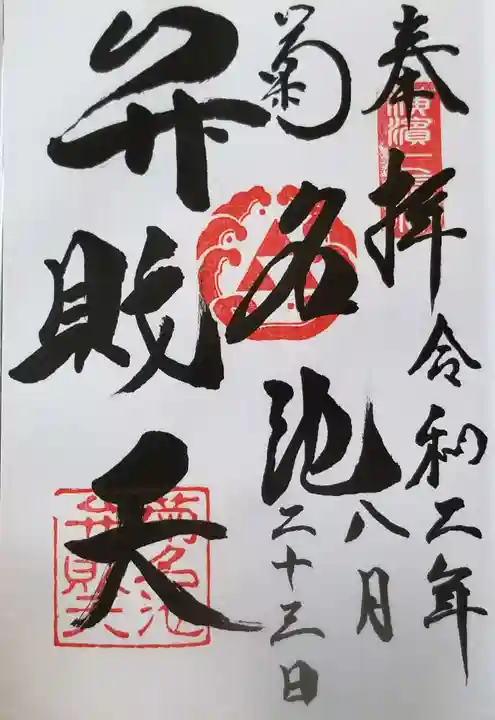 奉拝
令和二年
八月
二十三日
菊名池
弁財天
菊名池
弁財天